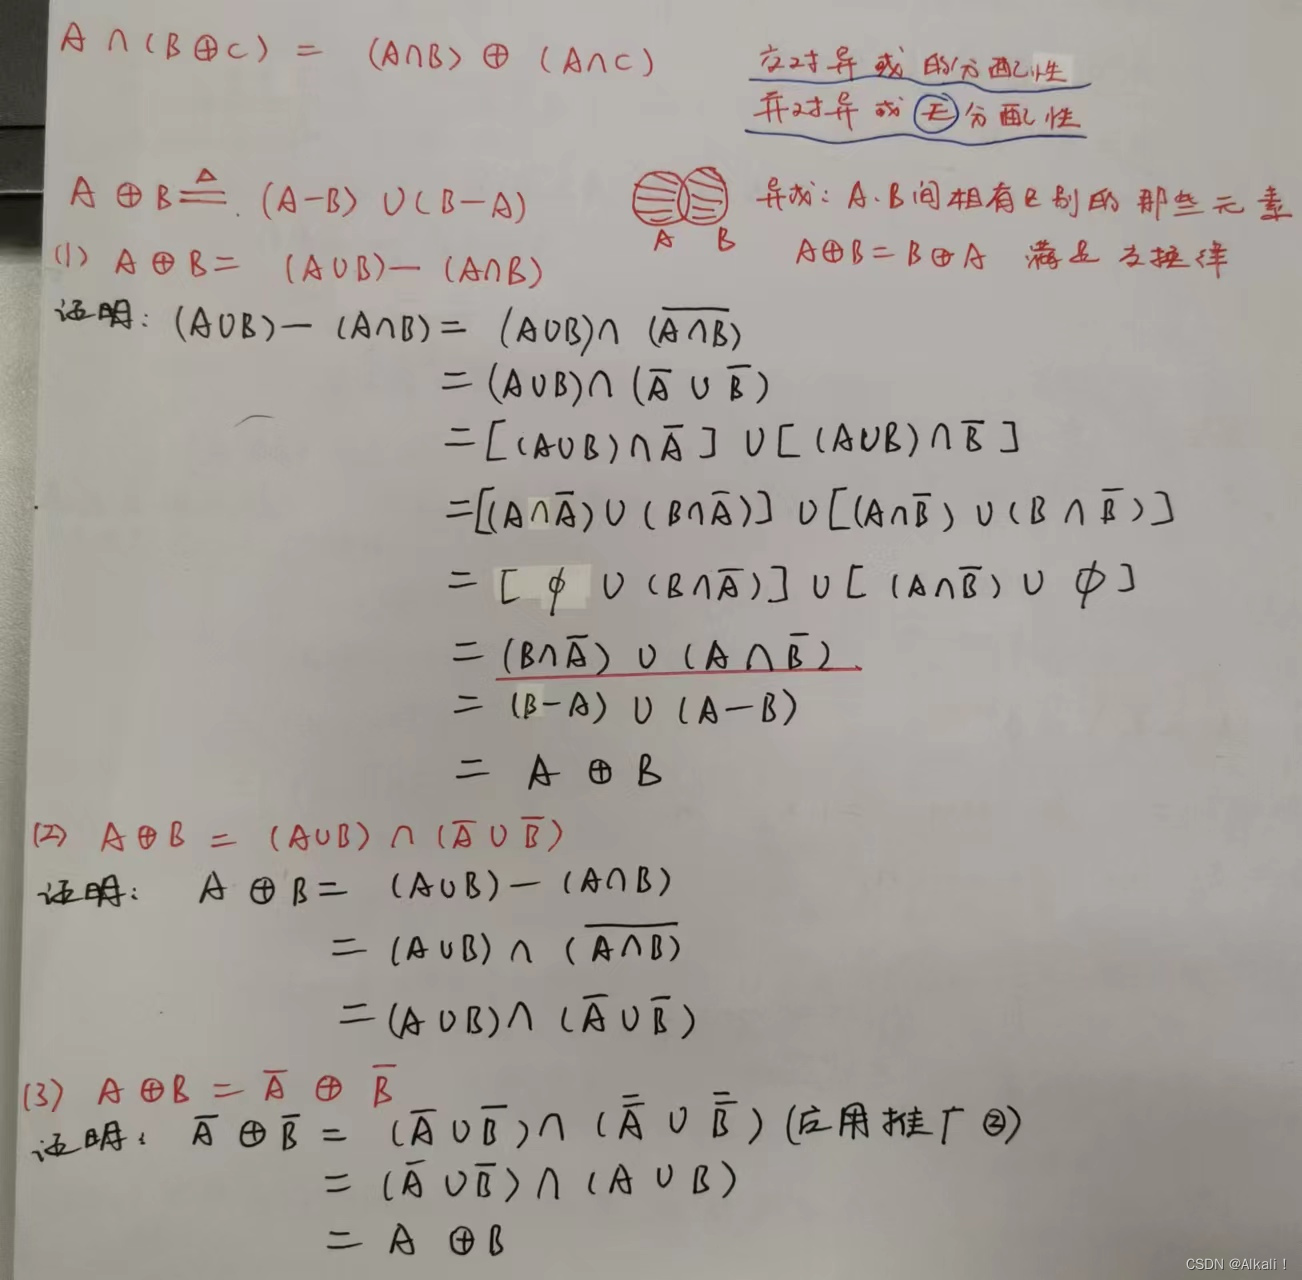 A ∩ (B ⊕ C) = (A∩B) ⊕ (A∩C)
交对异或的分配性
并对异或无分配性
A ⊕ B ≜ (A-B) ∪ (B-A)
A B
异或: A.B间相有区别的那些元素
A⊕B = B⊕A 满足交换律
(1) A ⊕ B = (A∪B) - (A∩B)
证明: (A∪B) - (A∩B) = (A∪B) ∩ (A̅ ̅∩̅ ̅B̅)
= (A∪B) ∩ (A̅ ∪ B̅)
= [(A∪B) ∩ A̅] ∪ [(A∪B) ∩ B̅]
= [(A∩A̅) ∪ (B∩A̅)] ∪ [(A∩B̅) ∪ (B∩B̅)]
= [ϕ ∪ (B∩A̅)] ∪ [(A∩B̅) ∪ ϕ]
= (B∩A̅) ∪ (A∩B̅)
= (B-A) ∪ (A-B)
= A ⊕ B
(2) A ⊕ B = (A∪B) ∩ (A̅ ∪ B̅)
证明: A ⊕ B = (A∪B) - (A∩B)
= (A∪B) ∩ (A̅ ̅∩̅ ̅B̅)
= (A∪B) ∩ (A̅ ∪ B̅)
(3) A ⊕ B = A̅ ⊕ B̅
证明: A̅ ⊕ B̅ = (A̅ ∪ B̅) ∩ (A̿ ∪ B̿) (应用推广②)
= (A̅ ∪ B̅) ∩ (A ∪ B)
= A ⊕ B
CSDN @Alkali！